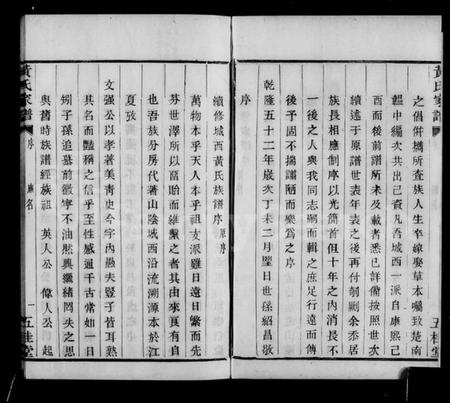 黃氏家譜
之倡併攜所查族人生卒線娶草本囑致楚南
韞中編次共出己資凡吾城西一派自康熙己
酉而後前譜所未及載者悉已詳備按照世次
續述于原譜世表年表之後再付剞劂余忝居
族長相應制序以光簡首但十年之內消長不
一後之人與我同志嗣而輯之庶足行遠而傳
後予固不揣譾陋而樂為之序
乾隆五十二年歲次丁未二月 日世孫紹昌敬
序
五桂堂
續修城西黃氏族譜序 原序
萬物本乎天人本乎祖支派雖日遠日繁而先
芬世澤所以啻貽而維繫之者其由來實有自
也吾族分居代著山陰城西沿流溯源本於江
夏攷
文強公以孝著美青史今宇內愚夫豎子皆耳熟
其名而豔稱之信乎至性感通千古常如一日
矧子孫追慕前徽寧不油然興繼緒罔失之思
與舊時族譜經族祖 英人公 偉人公 起
黃氏家譜
序
一
五桂堂